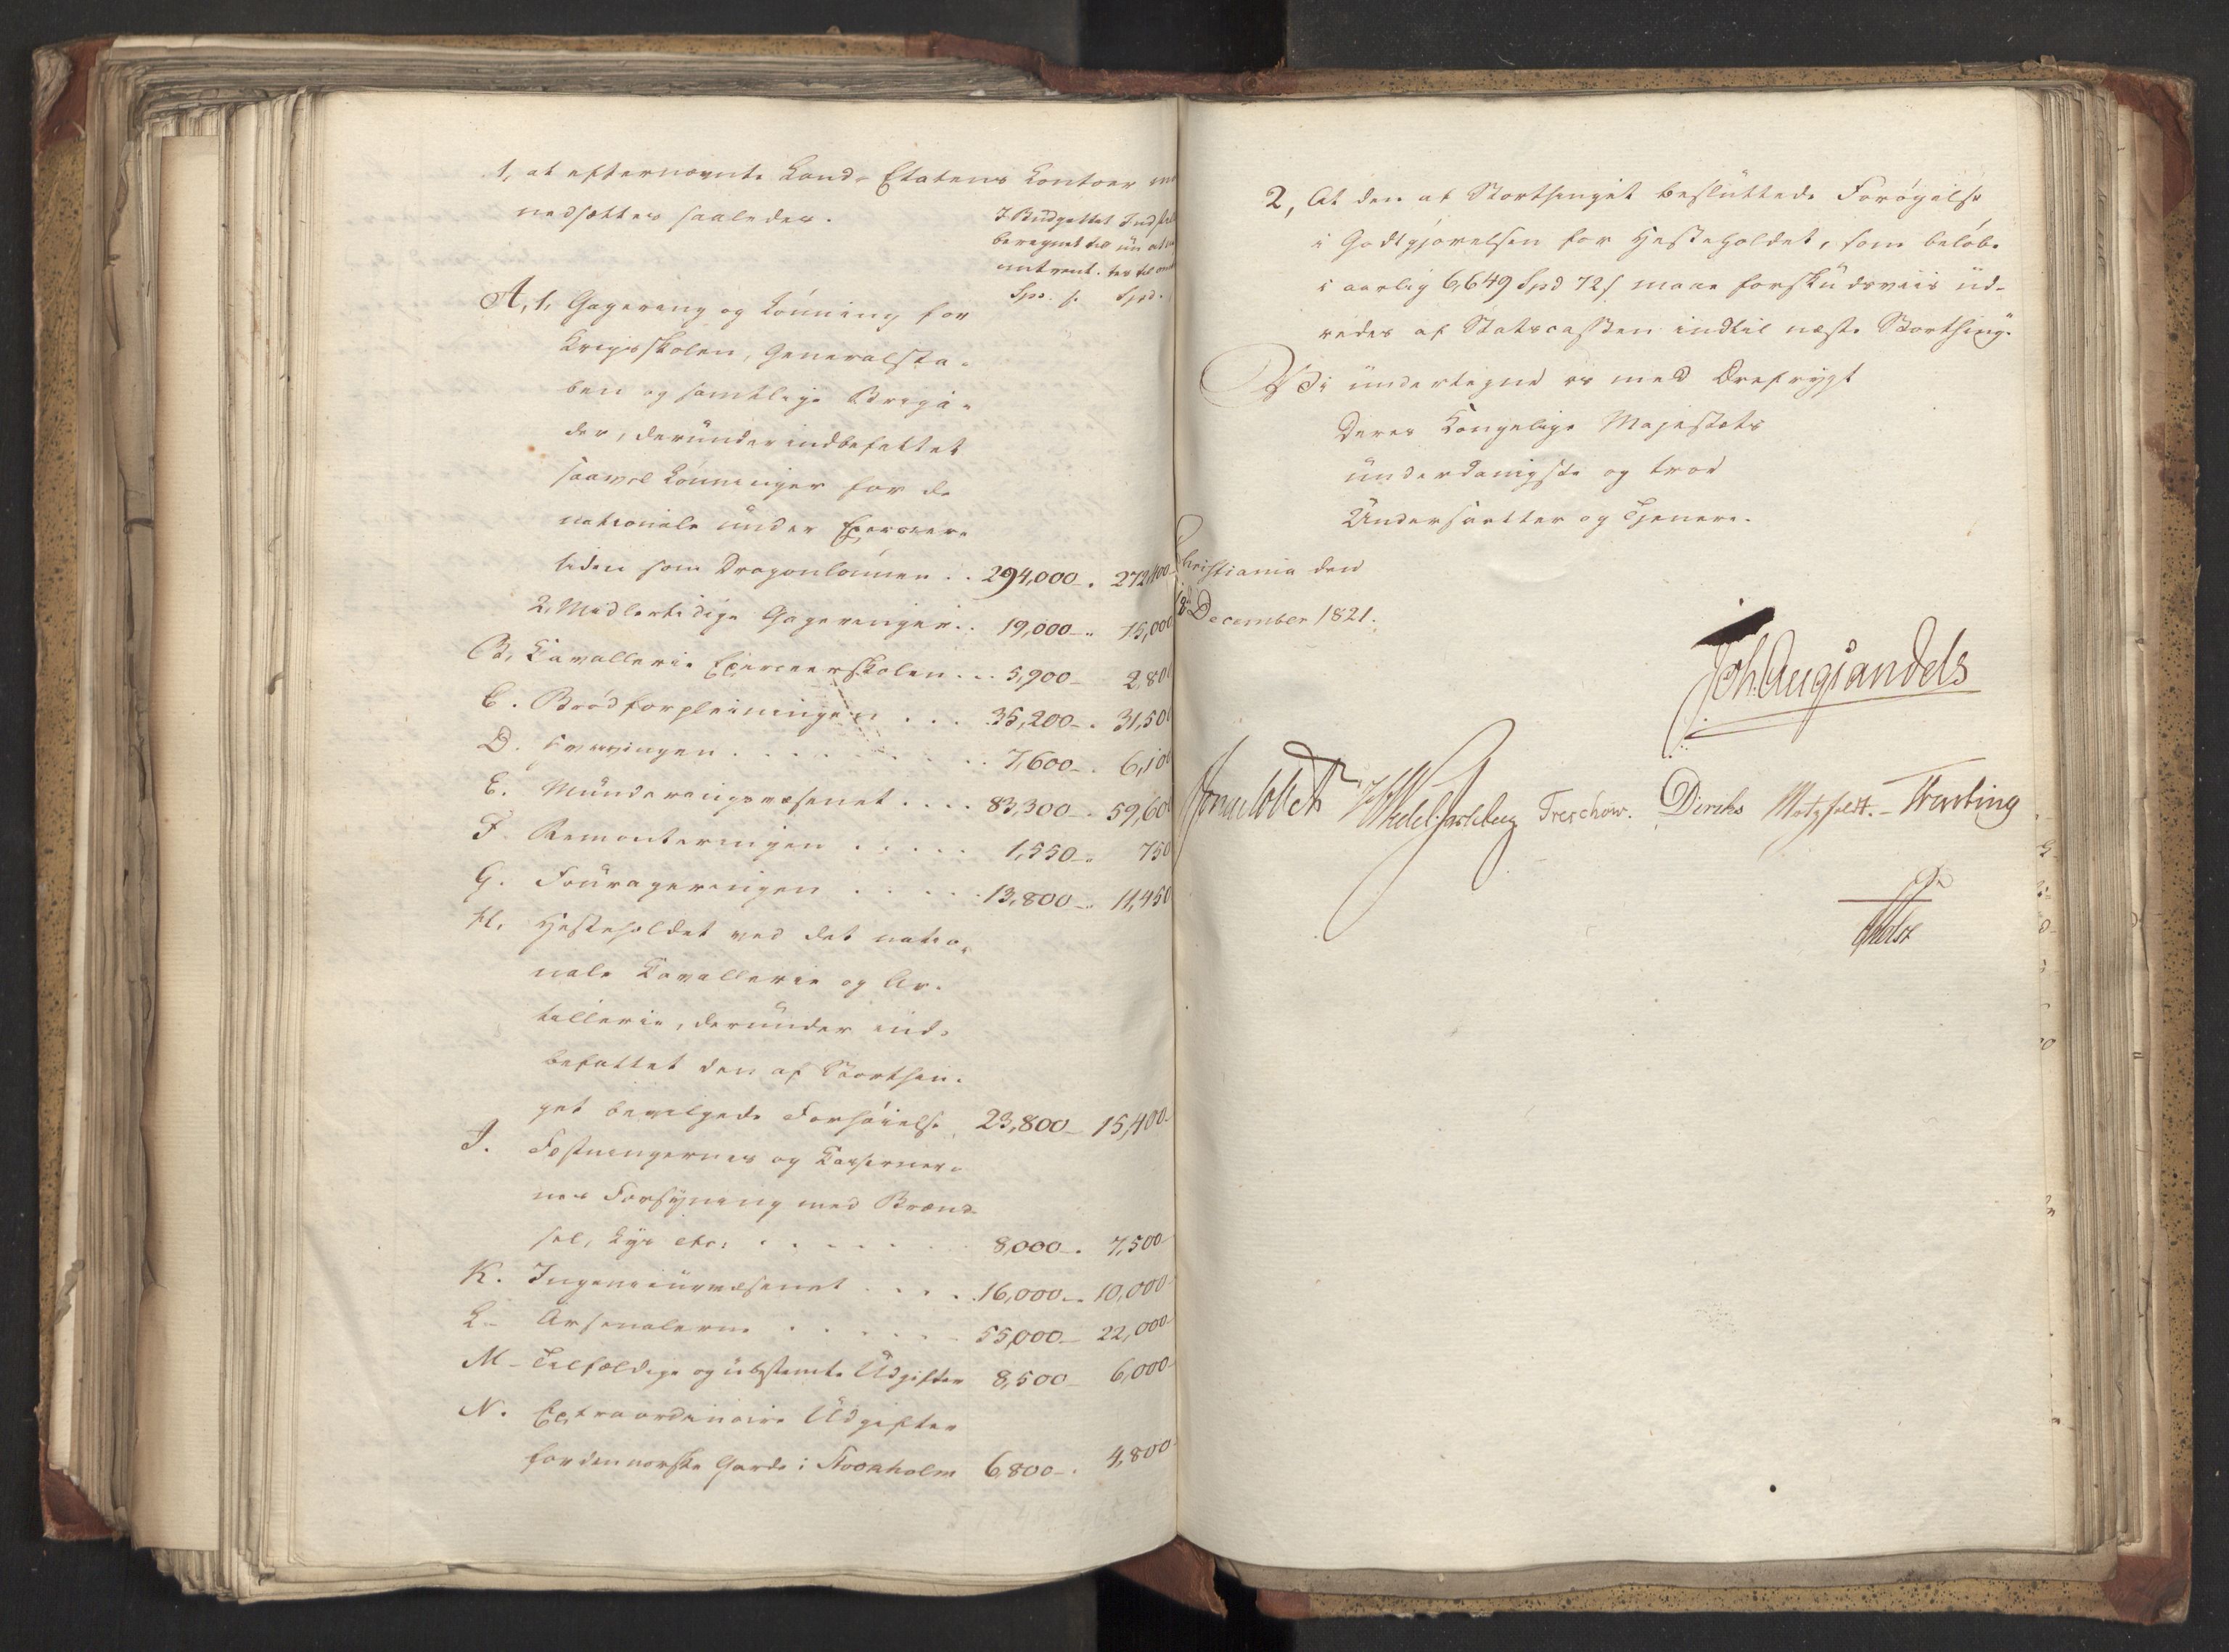 1, at efternævnte Land-Etatens Kontoer
nedsættes saaledes.
I Budgettet Indskr
beregnet til
Spd. s. Spd.
A, 1, Gagering og Lønning for
Krigsskolen, Generalsta-
ben og samtlige Briga-
der, derunder indbefattet
saavel Lønninger for de
nationale under Exerceer-
tiden som Dragonlønnen . . 294,000 - . 272,400
2, Midlertidige Gageringer . . 19,000 - " 15,000
B, Kavallerie Exerceerskolen . . . 5,900 - 2,800
C. Brødforpleiningen . . . . 35,200 - . 31,500
D. Hvervingen . . . . . . . . . 7,600 - . 6,100
E. Munderingsvæsenet . . . . 83,300 - . 59,600
F. Remonteringen . . . . . 1,550 - " 750
G. Fourageringen . . . . . 13,800 - " 11,450
H, Hesteholdet ved det natio-
nale Kavallerie og Ar-
tillerie, derunder ind-
befattet den af Storthin-
get bevilgede Forhøielse 23,800 - 15,400 -
I. Fæstningernes og Kaserner-
nes Forsyning med Brænd-
sel, Lys etc: . . . . . . . 8,000 - . 7,500 -
K. Ingenieurvæsenet . . . . 16,000 - . 10,000 -
L - Arsenalerne . . . . . . 55,000 - 22,000 -
M - Tilfældige og ubestemte Udgifter 8,500 - 6,000 -
N. Extraordinaire Udgifter
for den norske Garde i Stockholm 6,800 - . 4,800 -
2, At den af Storthinget besluttede Forøgelse
i Godtgjørelsen for Hesteholdet, som beløbe
i aarlig 6,649 Spd 72 s maae forskudsviis ud-
redes af Statscassen indtil næste Storthing."
Vi undertegne os med Ærefrygt
Deres Kongelige Majestæts
underdanigste og troe
Undersaatter og Tjenere.
Christiania den
18de December 1821.
Joh. Aug. Sandels
Sommerhielm Wedel Jarlsberg Treschow. Diriks Motzfeldt. - Krebting
Holst